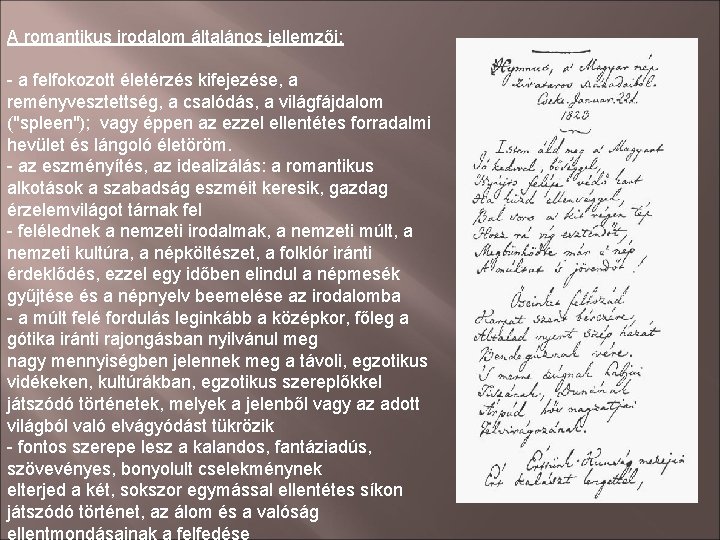 A romantikus irodalom általános jellemzői:
- a felfokozott életérzés kifejezése, a
reményvesztettség, a csalódás, a világfájdalom
("spleen"); vagy éppen az ezzel ellentétes forradalmi
hevület és lángoló életöröm.
- az eszményítés, az idealizálás: a romantikus
alkotások a szabadság eszméit keresik, gazdag
érzelemvilágot tárnak fel
- felélednek a nemzeti irodalmak, a nemzeti múlt, a
nemzeti kultúra, a népköltészet, a folklór iránti
érdeklődés, ezzel egy időben elindul a népmesék
gyűjtése és a népnyelv beemelése az irodalomba
- a múlt felé fordulás leginkább a középkor, főleg a
gótika iránti rajongásban nyilvánul meg
nagy mennyiségben jelennek meg a távoli, egzotikus
vidékeken, kultúrákban, egzotikus szereplőkkel
játszódó történetek, melyek a jelenből vagy az adott
világból való elvágyódást tükrözik
- fontos szerepe lesz a kalandos, fantáziadús,
szövevényes, bonyolult cselekménynek
elterjed a két, sokszor egymással ellentétes síkon
játszódó történet, az álom és a valóság
ellentmondásainak a felfedése
Hymnus, a' Magyar nép
zivataros századaiból.
Cseke. Januar. 22d.
1823
Isten áld meg a' Magyart
Jó kedvvel, bőséggel,
Nyújts feléje védő kart
Ha küzd ellenséggel,
Bal sors a' kit régen tép
Hozz rá víg esztendőt,
Megbünhödte már e' nép
A' múltat 's jövendőt!
Őseinket felhozád
Kárpát szent bérczére,
Általad nyert szép hazát
Bendegúznak vére.
'S merre zúgnak habjai
Tiszának, Dunának
Árpád hős magzatjai
Felvirágozának.
Értünk Kunság mezejin
Ért kalászt lengettél,